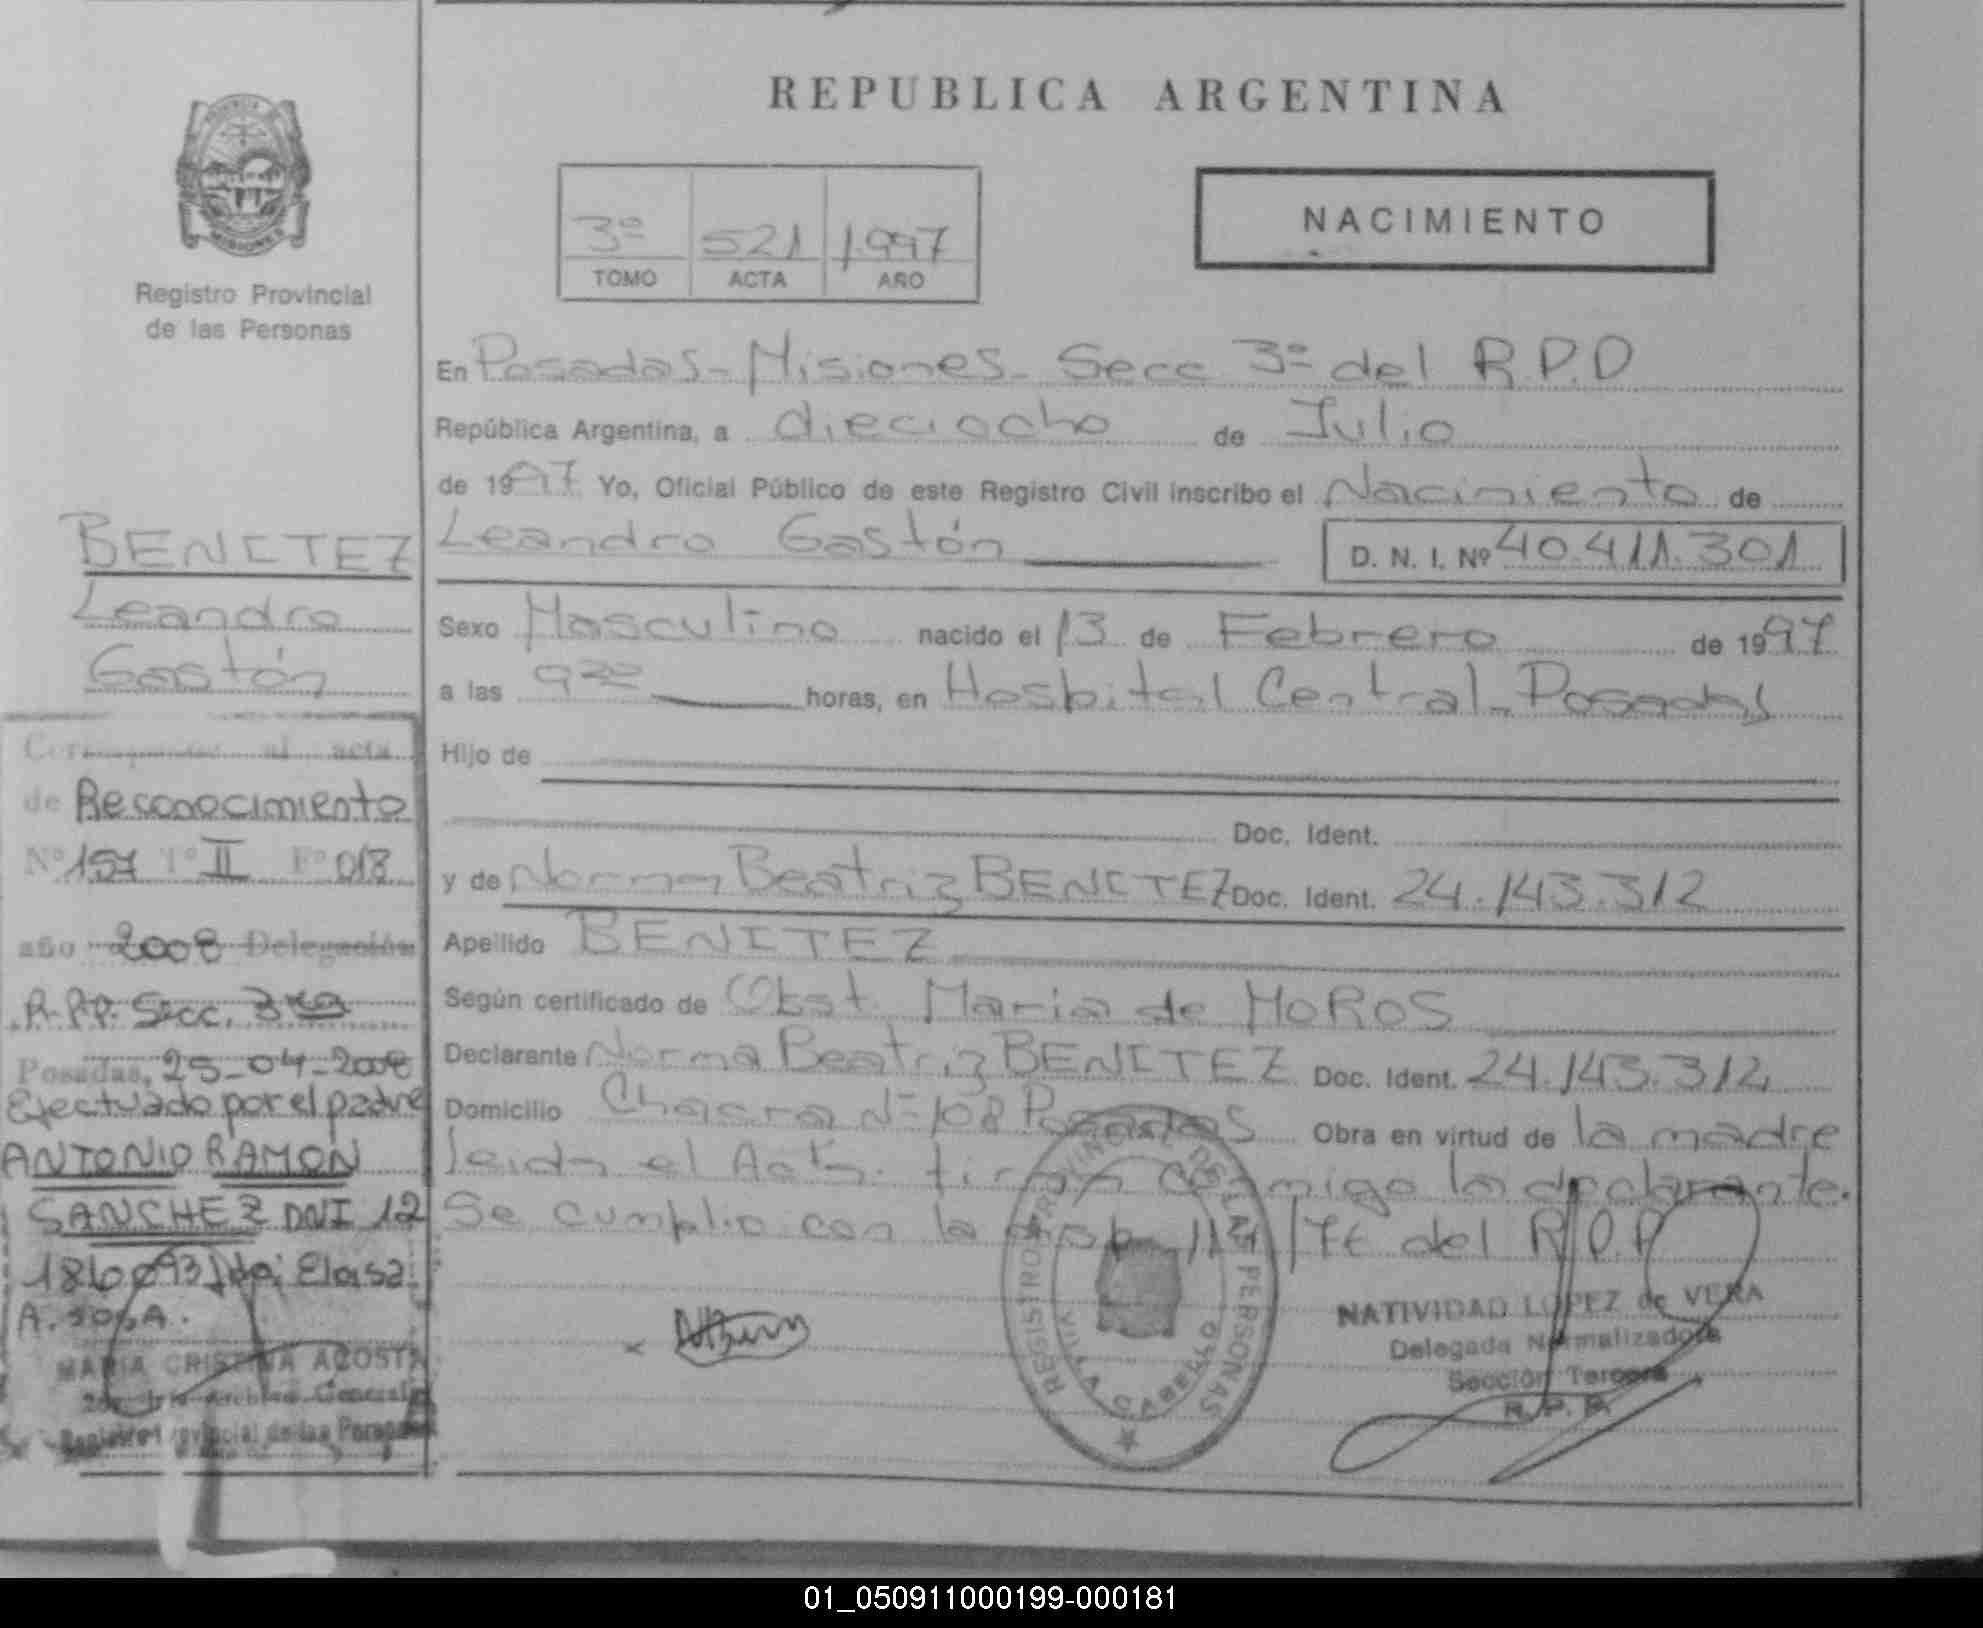 REPUBLICA ARGENTINA
MISIONES
Registro Provincial
de las Personas
3º 521 1.997
TOMO ACTA AÑO
NACIMIENTO
En Posadas - Misiones - Secc 3º del R.P.P
República Argentina, a dieciocho de Julio
de 1997 Yo, Oficial Público de este Registro Civil inscribo el Nacimiento de
Leandro Gastón D. N. I. Nº 40.411.301
Sexo Masculino nacido el 13 de Febrero de 1997
a las 9 horas, en Hospital Central - Posadas
Hijo de
Doc. Ident.
y de Norma Beatriz BENITEZ Doc. Ident. 24.143.312
Apellido BENITEZ
Según certificado de Obst. Maria de MOROS
Declarante Norma Beatriz BENITEZ Doc. Ident. 24.143.312
Domicilio Chacra Nº 108 Posadas Obra en virtud de la madre
leida el Acta. firma conmigo la declarante.
Se cumplio con la disp. 114/76 del R.P.P
REGISTRO PROVINCIAL DE LAS PERSONAS
VILLA CABELLO
NATIVIDAD LOPEZ de VERA
Delegada Normalizadora
Sección Tercera
R. P. P.
BENITEZ
Leandro
Gastón
Corresponde al acta
de Reconocimiento
Nº 157 Tº II Fº 018
año 2008 Delegación
R.P.P. Secc. 3ra
Posadas, 25-04-2008
Efectuado por el padre
ANTONIO RAMON
SANCHEZ DNI 12
186093 Eloisa
A. SOSA.
MARIA CRISTINA ACOSTA
Archivo General
Registro Provincial de las Personas
01_050911000199-000181